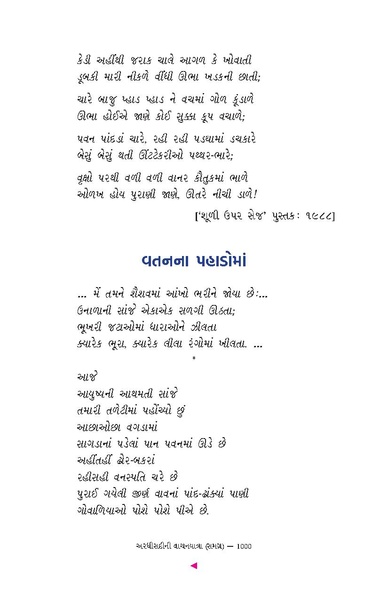 કેડી અહીંથી જરાક ચાલે આગળ કે ખોવાતી
ડૂબકી મારી નીકળે વીંધી ઊભા ખડકની છાતી;
ચારે બાજુ પ્હાડ પ્હાડ ને વચમાં ગોળ કૂંડાળે
ઊભા હોઈએ જાણે કોઈ સુક્કા કૂપ વચાળે;
પવન પાંદડાં ચારે, રહી રહી પડઘામાં ડચકારે
બેસું બેસું થતી ઊંટટેકરીઓ પથ્થર-ભારે;
વૃક્ષો પરથી વળી વળી વાનર કૌતુકમાં ભાળે
ઓળખ હોય પુરાણી જાણે, ઊતરે નીચી ડાળે!
['શૂળી ઉપર સેજ' પુસ્તક: ૧૯૮૮]
વતનના પહાડોમાં
... મેં તમને શૈશવમાં આંખો ભરીને જોયા છે:...
ઉનાળાની સાંજે એકાએક સળગી ઊઠતા;
ભૂખરી જટાઓમાં ધારાઓને ઝીલતા
ક્યારેક ભૂરા, ક્યારેક લીલા રંગોમાં ખીલતા. ...
*
આજે
આયુષ્યની આથમતી સાંજે
તમારી તળેટીમાં પહોંચ્યો છું
આછાઓછા વગડામાં
સાગડાનાં પડેલાં પાન પવનમાં ઊડે છે
અહીંતહીં ઢોર-બકરાં
રહીસહી વનસ્પતિ ચરે છે
પુરાઈ ગયેલી જીર્ણ વાવનાં પાંદ-ઢાંક્યાં પાણી
ગોવાળિયાઓ પોશે પોશે પીએ છે.
અરધીસદીની વાચનયાત્રા (સમગ્ર) — 1000